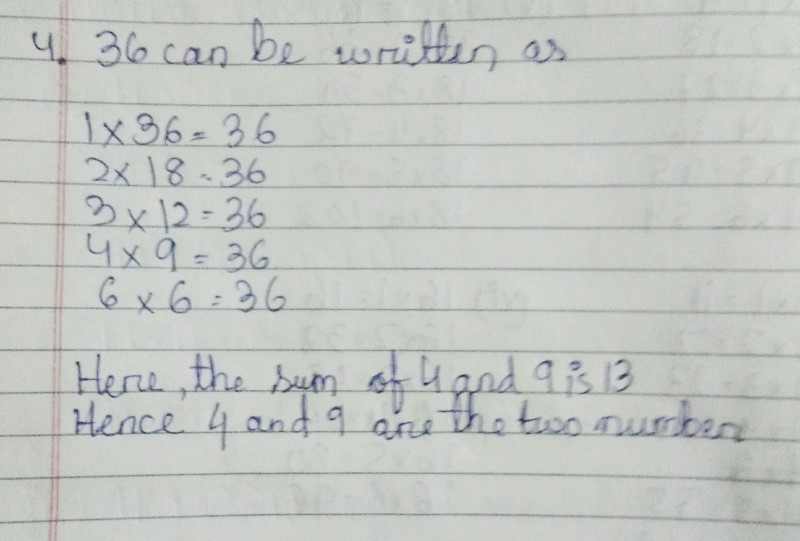 4. 36 can be written as
1 x 36 = 36
2 x 18 = 36
3 x 12 = 36
4 x 9 = 36
6 x 6 = 36
Here, the sum of 4 and 9 is 13
Hence 4 and 9 are the two number